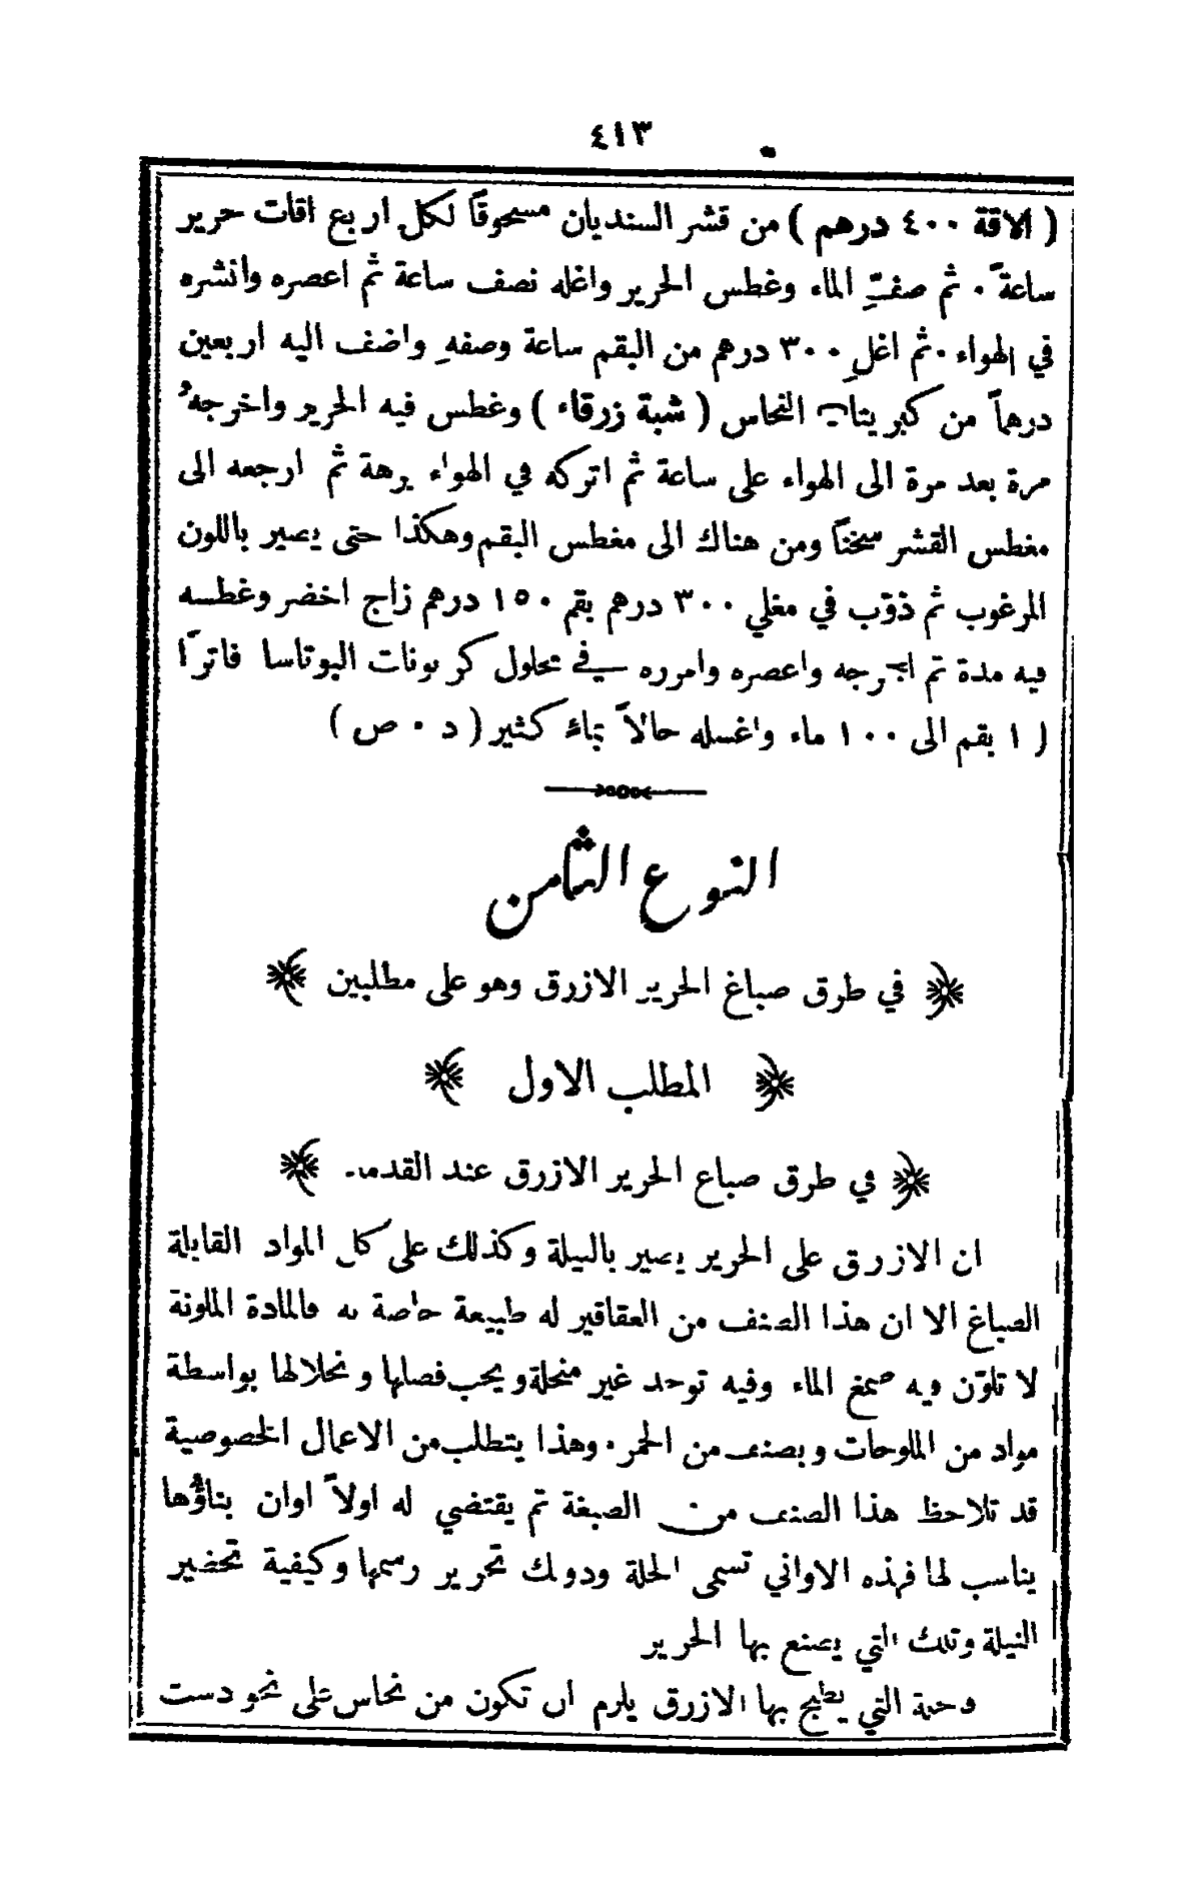 ٤١٣
( الاقة ٤٠٠ درهم ) من قشر السنديان مسحوقاً لكل اربع اقات حرير
ساعةً ٠ ثم صفِّ الماء وغطس الحرير واغله نصف ساعة ثم اعصره وانشره
في الهواء ٠ ثم اغلِ ٣٠٠ درهم من البقم ساعة وصفهِ واضف اليه اربعين
درهماً من كبريتات النحاس ( شبة زرقاء ) وغطس فيه الحرير واخرجهُ
مرة بعد مرة الى الهواء على ساعة ثم اتركه في الهواء برهة ثم ارجعه الى
مغطس القشر سخناً ومن هناك الى مغطس البقم وهكذا حتى يصير باللون
المرغوب ثم ذوّب في مغلي ٣٠٠ درهم بقم ١٥٠ درهم زاج اخضر وغطسه
فيه مدة ثم اخرجه واعصره وامرره في محلول كربونات البوتاسا فاتراً
( ١ بقم الى ١٠٠ ماء واغسله حالاً بماءٍ كثير ( د ٠ ص )
النوع الثامن
في طرق صباغ الحرير الازرق وهو على مطلبين
المطلب الاول
في طرق صباغ الحرير الازرق عند القدماء
ان الازرق على الحرير يصير بالنيلة وكذلك على كل المواد القابلة
الصباغ الا ان هذا الصنف من العقاقير له طبيعة خاصة به فالمادة الملونة
لا تلوّن فيه صمغ الماء وفيه توجد غير منحلة ويجب فصلها ونحلالها بواسطة
مواد من الملوحات وبصنف من الخمر ٠ وهذا يتطلب من الاعمال الخصوصية
قد تلاحظ هذا الصنف من الصبغة ثم يقتضي له اولاً اوان بناؤُها
يناسب لها فهذه الاواني تسمى الحلة ودونك تحرير رسمها وكيفية تحضير
النيلة وتلك التي يصنع بها الحرير
التي يطبخ بها الازرق يلزم ان تكون من نحاس على نحو دست